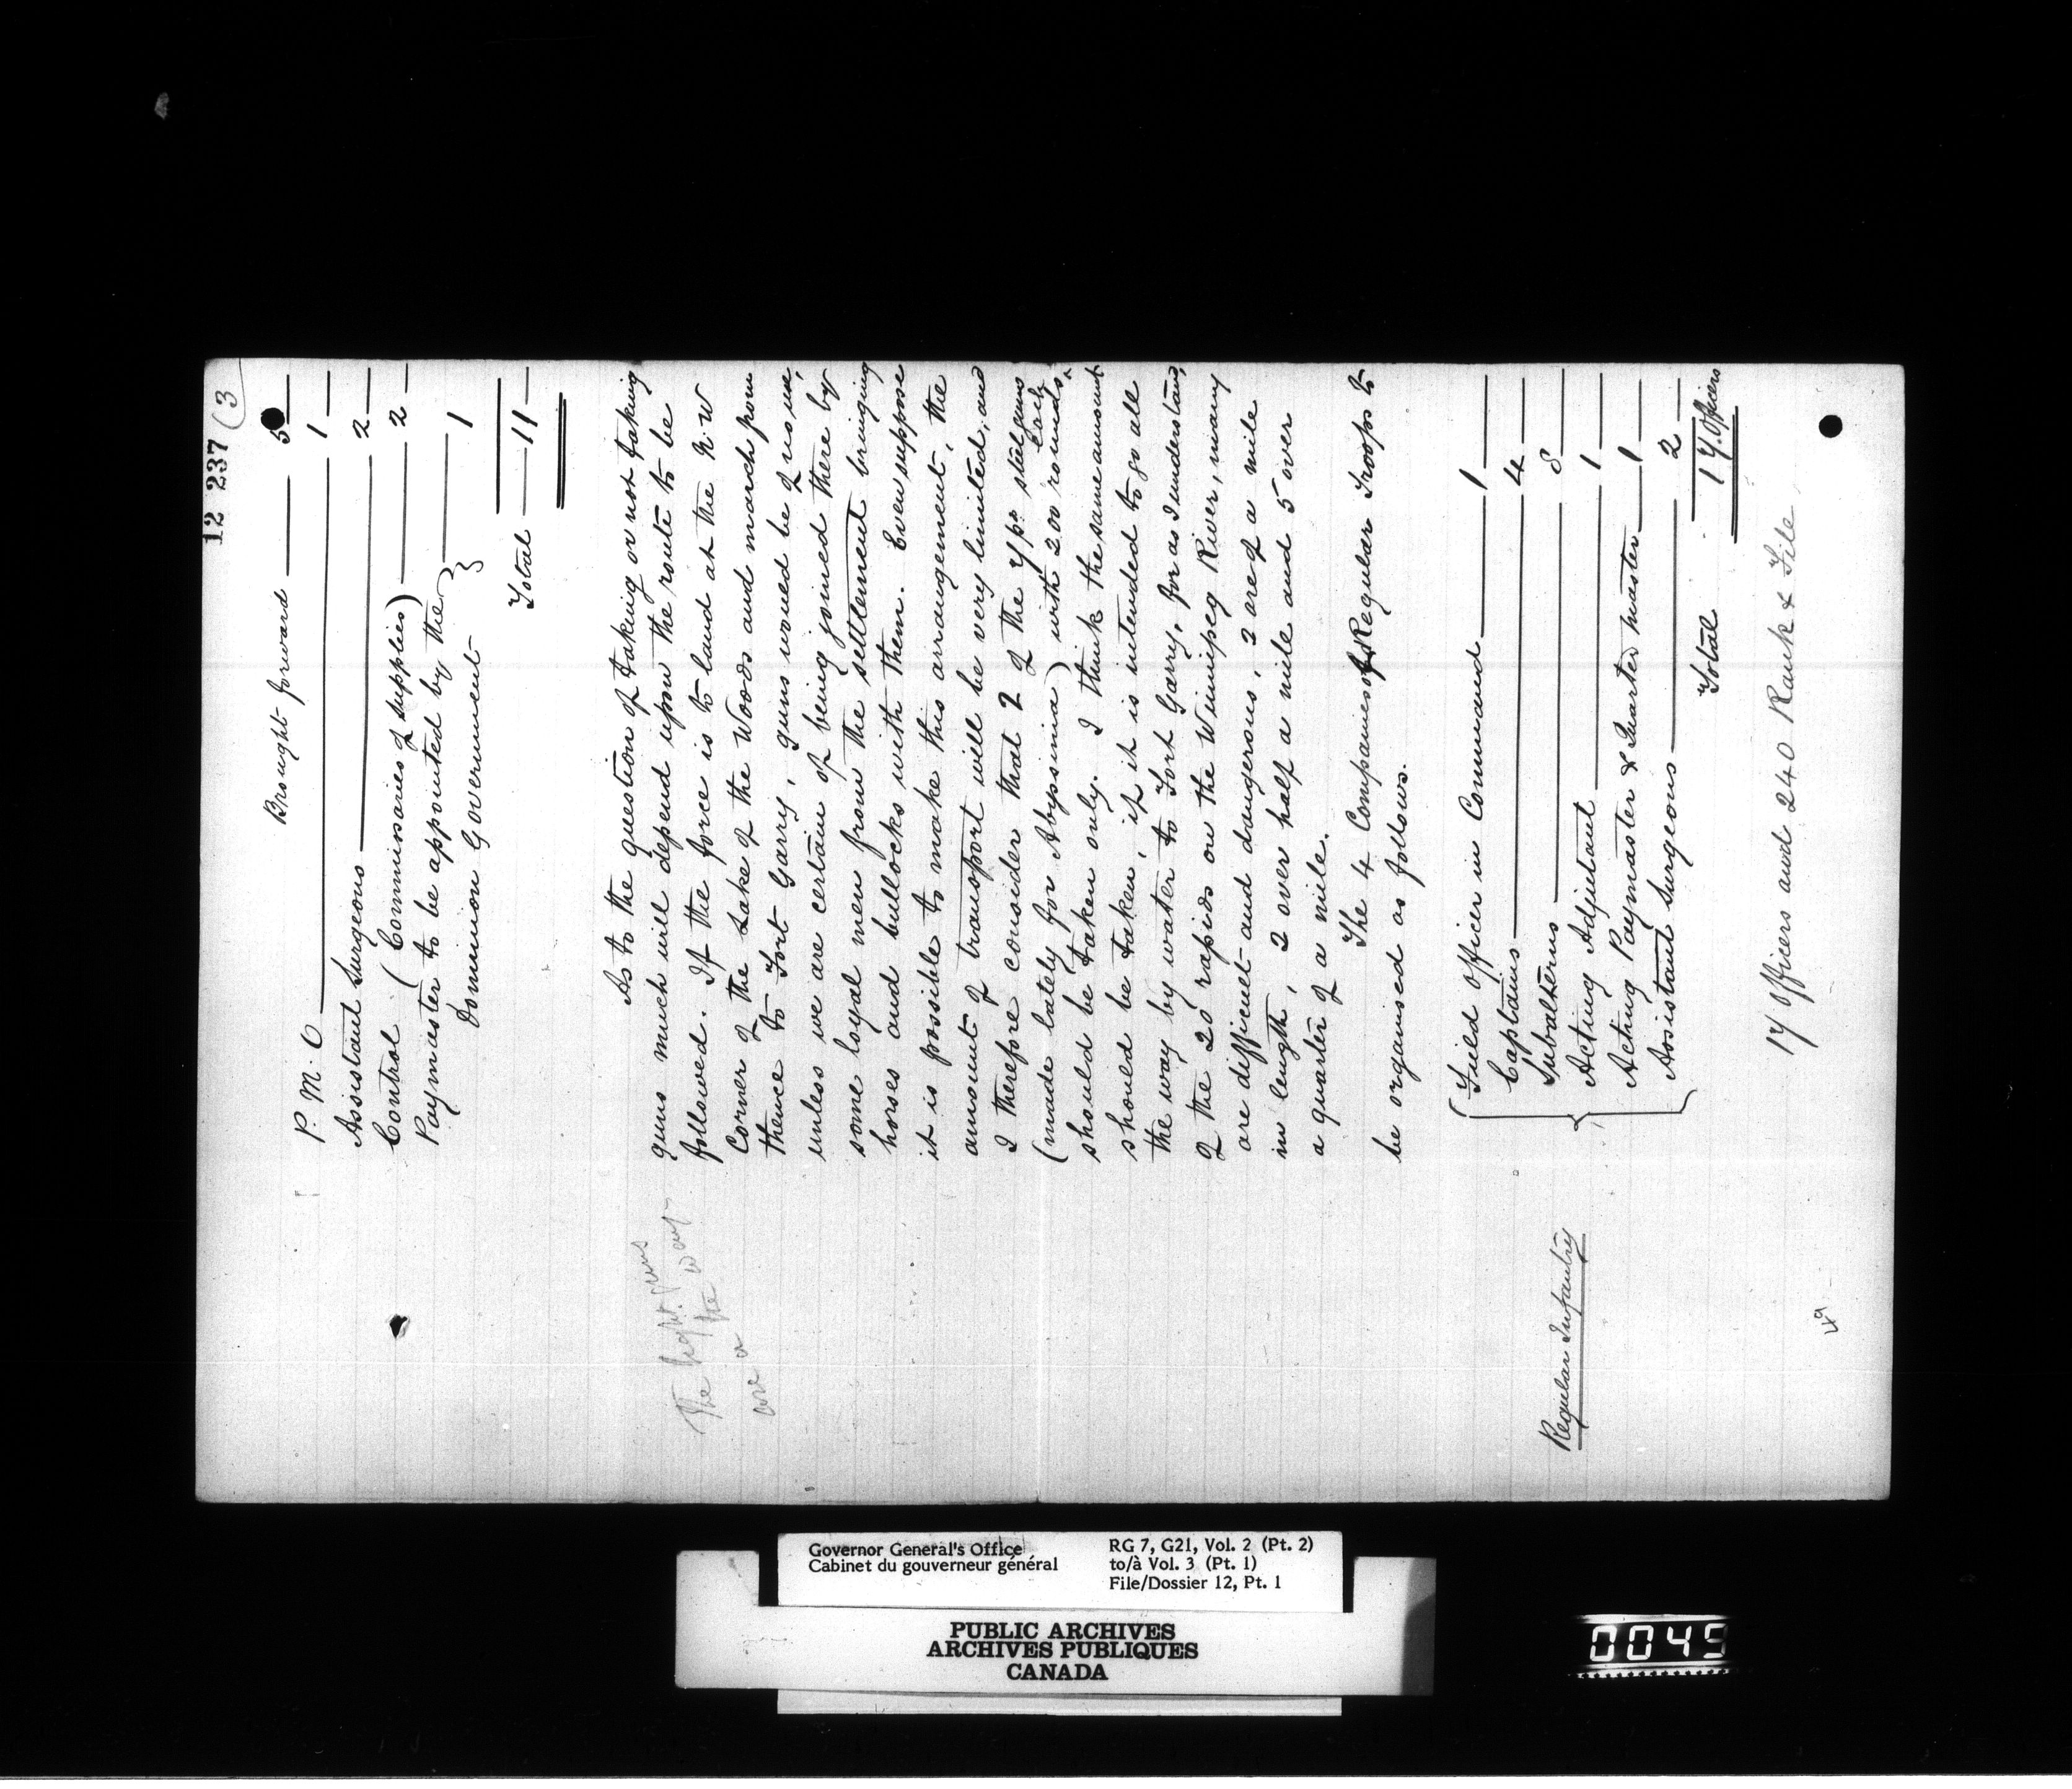 12 237 (3
Brought forward — 5
P. M. O — 1
Assistant Surgeons — 2
Control (Commissaries of supplies) — 2
Paymaster to be appointed by the }
Dominion Government } — 1
Total — 11
As to the question of taking or not taking
guns much will depend upon the route to be
followed. If the force is to land at the N.W
Corner of the Lake of the Woods and march from
thence to Fort Garry, guns would be of no use,
unless we are certain of being joined there by
some loyal men from the settlement bringing
horses and bullocks with them. Even suppose
it is possible to make this arrangement, the
amount of transport will be very limited, and
I therefore consider that 2 of the 7 pr. steel guns
(made lately for Abyssinia) with 200 rounds each
should be taken only. I think the same amount
should be taken, if it is intended to go all
the way by water to Fort Garry, for as I understand,
of the 20 rapids on the Winnipeg River, many
are difficult and dangerous, 2 are of a mile
in length, 2 over half a mile and 5 over
a quarter of a mile.
The 4 Companies of Regular Troops to
be organised as follows.
Regular Infantry
Field officer in Command — 1
Captains — 4
Subalterns — 8
Acting Adjutant — 1
Acting Paymaster & Quarter master — 1
Assistant Surgeons — 2
Total 17 Officers
17 Officers and 240 Rank & File
The light guns
are a
the way
49
Governor General's Office
Cabinet du gouverneur général
RG 7, G21, Vol. 2 (Pt. 2)
to/à Vol. 3 (Pt. 1)
File/Dossier 12, Pt. 1
PUBLIC ARCHIVES
ARCHIVES PUBLIQUES
CANADA
0045